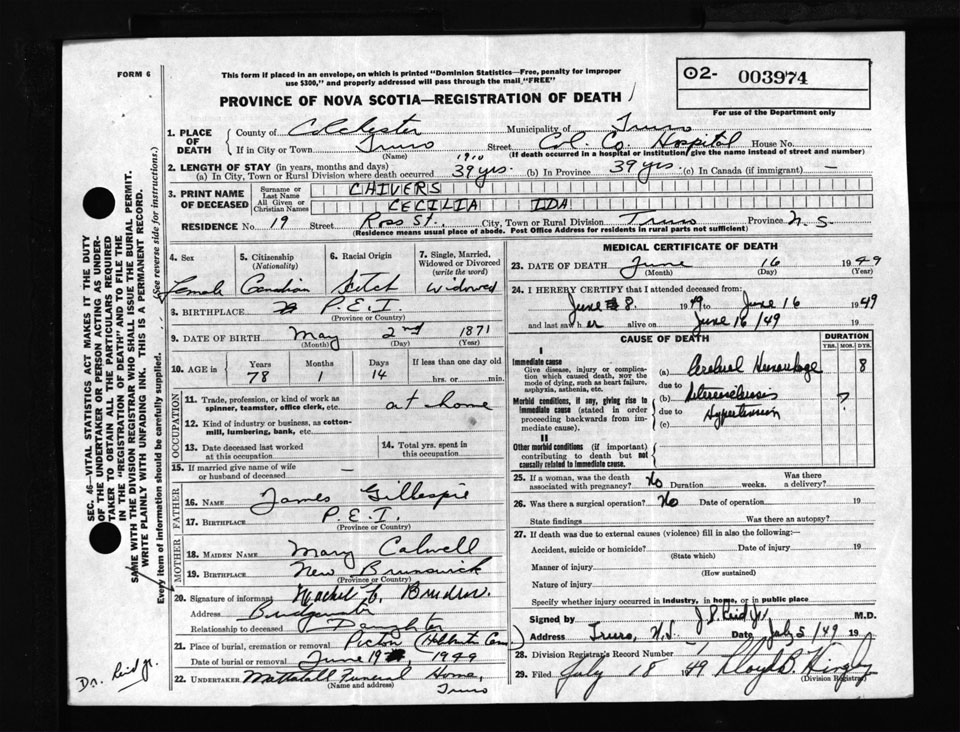 FORM 6
This form if placed in an envelope, on which is printed "Dominion Statistics—Free, penalty for improper
use $300," and properly addressed will pass through the mail "FREE"
PROVINCE OF NOVA SCOTIA—REGISTRATION OF DEATH
02- 003974
For use of the Department only
1. PLACE OF DEATH
County of Colchester Municipality of Truro
If in City or Town Truro Street Col. Co. Hospital House No.
(Name) (If death occurred in a hospital or institution, give the name instead of street and number)
2. LENGTH OF STAY (in years, months and days) 1910
(a) In City, Town or Rural Division where death occurred 39 yrs. (b) In Province 39 yrs. (c) In Canada (if immigrant) —
3. PRINT NAME OF DECEASED
Surname or Last Name CHIVERS
All Given or Christian Names CECILIA IDA
RESIDENCE No. 19 Street Ross St. City, Town or Rural Division Truro Province N. S
(Residence means usual place of abode. Post Office Address for residents in rural parts not sufficient)
4. Sex
Female
5. Citizenship (Nationality)
Canadian
6. Racial Origin
7. Single, Married, Widowed or Divorced (write the word)
Widowed
8. BIRTHPLACE P.E.I.
(Province or Country)
9. DATE OF BIRTH May 2nd 1871
(Month) (Day) (Year)
10. AGE is Years Months Days If less than one day old
78 1 14 hrs. or min.
OCCUPATION
11. Trade, profession, or kind of work as spinner, teamster, office clerk, etc. at home
12. Kind of industry or business, as cotton-mill, lumbering, bank, etc.
13. Date deceased last worked at this occupation
14. Total yrs. spent in this occupation
15. If married give name of wife or husband of deceased —
FATHER
16. NAME James Gillespie
17. BIRTHPLACE P.E.I.
(Province or Country)
MOTHER
18. MAIDEN NAME Mary Calwell
19. BIRTHPLACE New Brunswick
(Province or Country)
20. Signature of informant
Address Bridgewater
Relationship to deceased Daughter
21. Place of burial, cremation or removal Pictou
Date of burial or removal June 19, 1949
22. UNDERTAKER Mattatall Funeral Home, Truro
(Name and address)
MEDICAL CERTIFICATE OF DEATH
23. DATE OF DEATH June 16 1949
(Month) (Day) (Year)
24. I HEREBY CERTIFY that I attended deceased from:
June 8. 1949 to June 16 1949
and last saw her alive on June 16/49 19
CAUSE OF DEATH
DURATION
YRS. MOS. DYS.
I
Immediate cause
Give disease, injury or complication which caused death, NOT the mode of dying, such as heart failure, asphyxia, asthenia, etc.
(a) Cerebral Hemorrhage 8
due to
Morbid conditions, if any, giving rise to immediate cause (stated in order proceeding backwards from immediate cause).
(b) Arteriosclerosis ?
due to Hypertension
(c)
II
Other morbid conditions (if important) contributing to death but not causally related to immediate cause.
25. If a woman, was the death associated with pregnancy? No Duration weeks. Was there a delivery?
26. Was there a surgical operation? No Date of operation 19
State findings Was there an autopsy?
27. If death was due to external causes (violence) fill in also the following:—
Accident, suicide or homicide? Date of injury 19
(State which)
Manner of injury
(How sustained)
Nature of injury
Specify whether injury occurred in industry, in home, or in public place
Signed by J. P. Reid Jr. M.D.
Address Truro, N.S. Date July 5/49 19
28. Division Registrar's Record Number
29. Filed July 18 1949 Lloyd B. Kingley
(Division Registrar)
SEC. 46—VITAL STATISTICS ACT MAKES IT THE DUTY
OF THE UNDERTAKER OR PERSON ACTING AS UNDER-
TAKER TO OBTAIN ALL THE PARTICULARS REQUIRED
IN THE "REGISTRATION OF DEATH" AND TO FILE THE
SAME WITH THE DIVISION REGISTRAR WHO SHALL ISSUE THE BURIAL PERMIT.
WRITE PLAINLY WITH UNFADING INK. THIS IS A PERMANENT RECORD.
Every item of information should be carefully supplied. (See reverse side for instructions.)
Dr. Reid Jr.